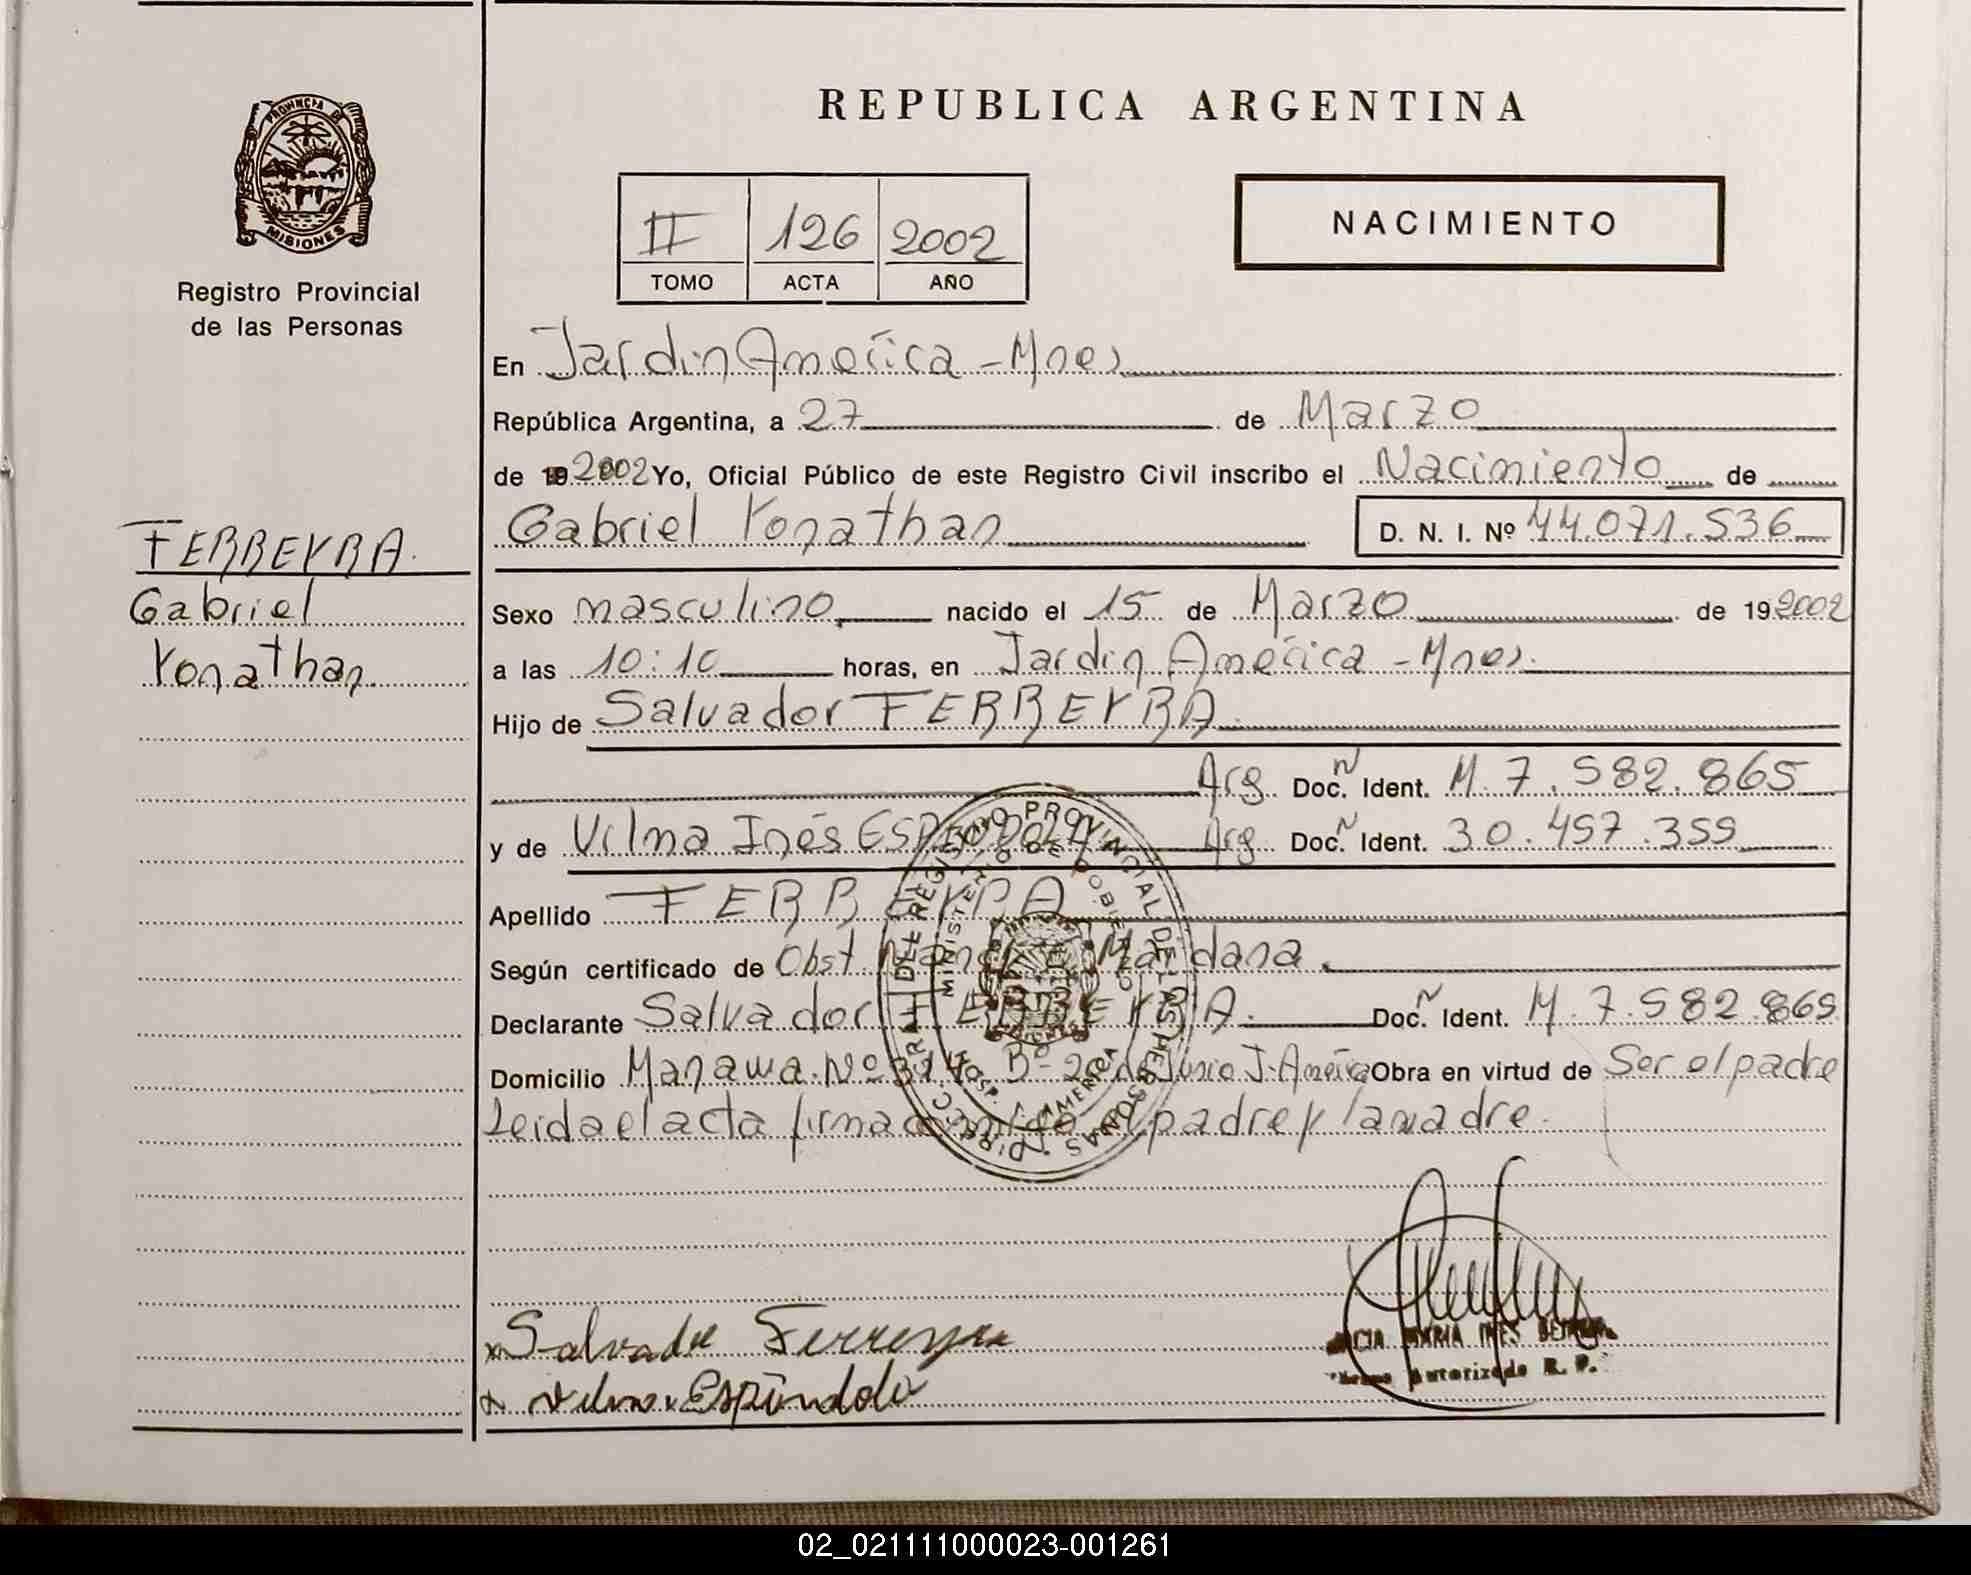 PROVINCIA DE
MISIONES
Registro Provincial
de las Personas
REPUBLICA ARGENTINA
II 126 2002
TOMO ACTA AÑO
NACIMIENTO
En Jardin América - Mnes
República Argentina, a 27 de Marzo
de 19 2002 Yo, Oficial Público de este Registro Civil inscribo el Nacimiento de
Gabriel Yonathan D. N. I. Nº 44.071.536
FERREYRA.
Gabriel
Yonathan.
Sexo masculino, nacido el 15 de Marzo de 19 2002
a las 10:10 horas, en Jardin América - Mnes.
Hijo de Salvador FERREYRA.
Arg. Doc. Ident. M. 7.582.865
y de Vilma Inés Arg. Doc. Ident. 30.457.359
Apellido FERREYRA
Según certificado de Obst. Maidana.
Declarante Salvador FERREYRA. Doc. Ident. M. 7.582.865
Domicilio Manawa Nº Bº- 20 de Junio J. América Obra en virtud de Ser el padre
Leida el acta firma el padre y la madre.
DIRECC. GRAL. DE REGISTRO PROVINCIAL DE LAS PERSONAS
MINISTERIO DE GOBIERNO
HOSP. J. AMERICA
Salvador Ferreyra
Vilma Espíndola
MARIA INES
Autorizado R. P.
02_021111000023-001261